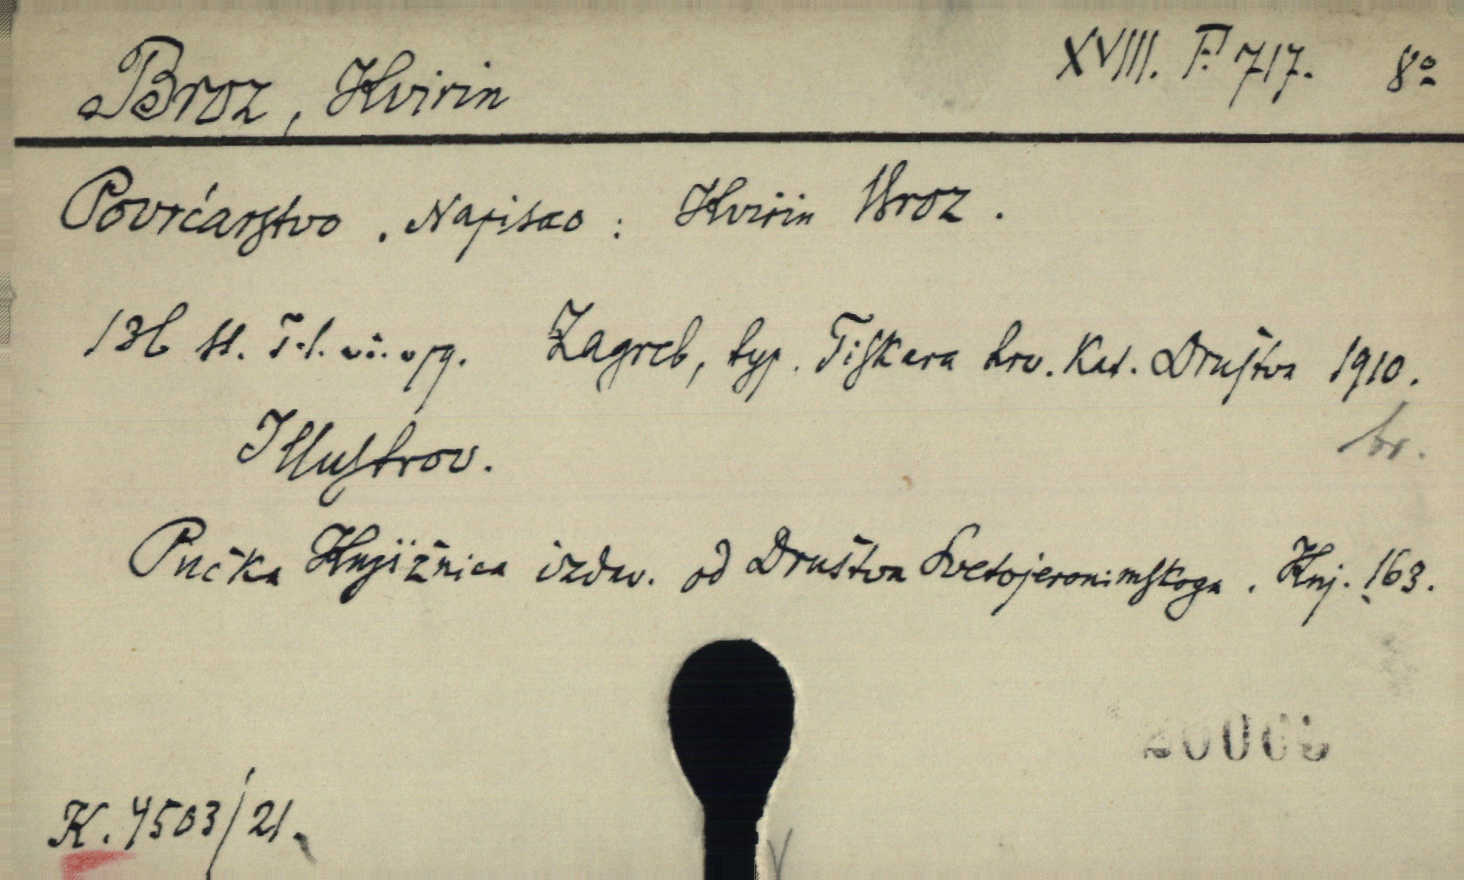 Broz, Kvirin XVIII. F. 717. 8º
Povrćarstvo. Napisao: Kvirin Broz.
136 st. T. l. Zagreb, typ. Tiskara hrv. Kat. Društva 1910.
Illustrov. br.
Pučka Knjižnica izdav. od Društva Svetojeronimskoga. Knj. 163.
K. 4503/21.